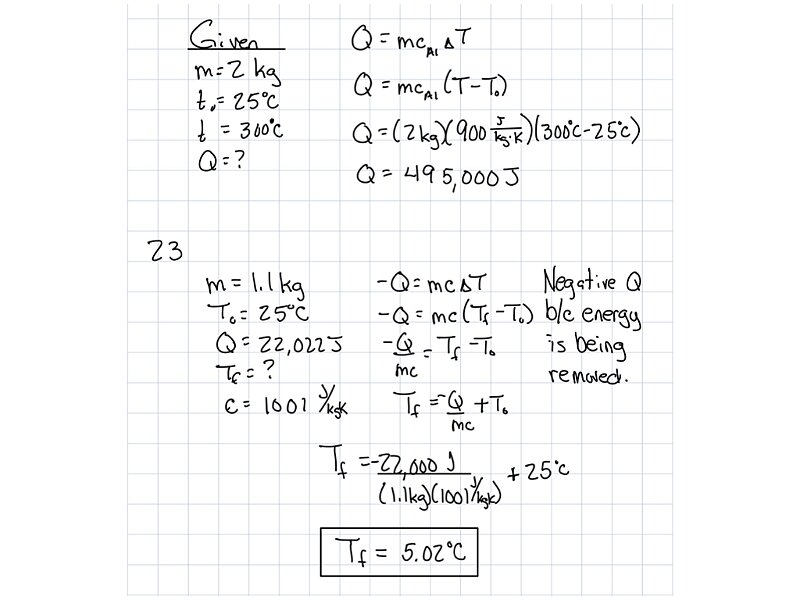 Given
m = 2 kg
t₀ = 25°C
t = 300°C
Q = ?
Q = mc_Al ΔT
Q = mc_Al (T - T₀)
Q = (2kg)(900 J/kg·K)(300°C - 25°C)
Q = 495,000 J
23
m = 1.1 kg
T₀ = 25°C
Q = 22,022 J
T_f = ?
c = 1001 J/kgK
-Q = mc ΔT
-Q = mc (T_f - T₀)
-Q/mc = T_f - T₀
T_f = -Q/mc + T₀
Negative Q
b/c energy
is being
removed.
T_f = -22,000 J/(1.1kg)(1001 J/kgK) + 25°C
T_f = 5.02°C